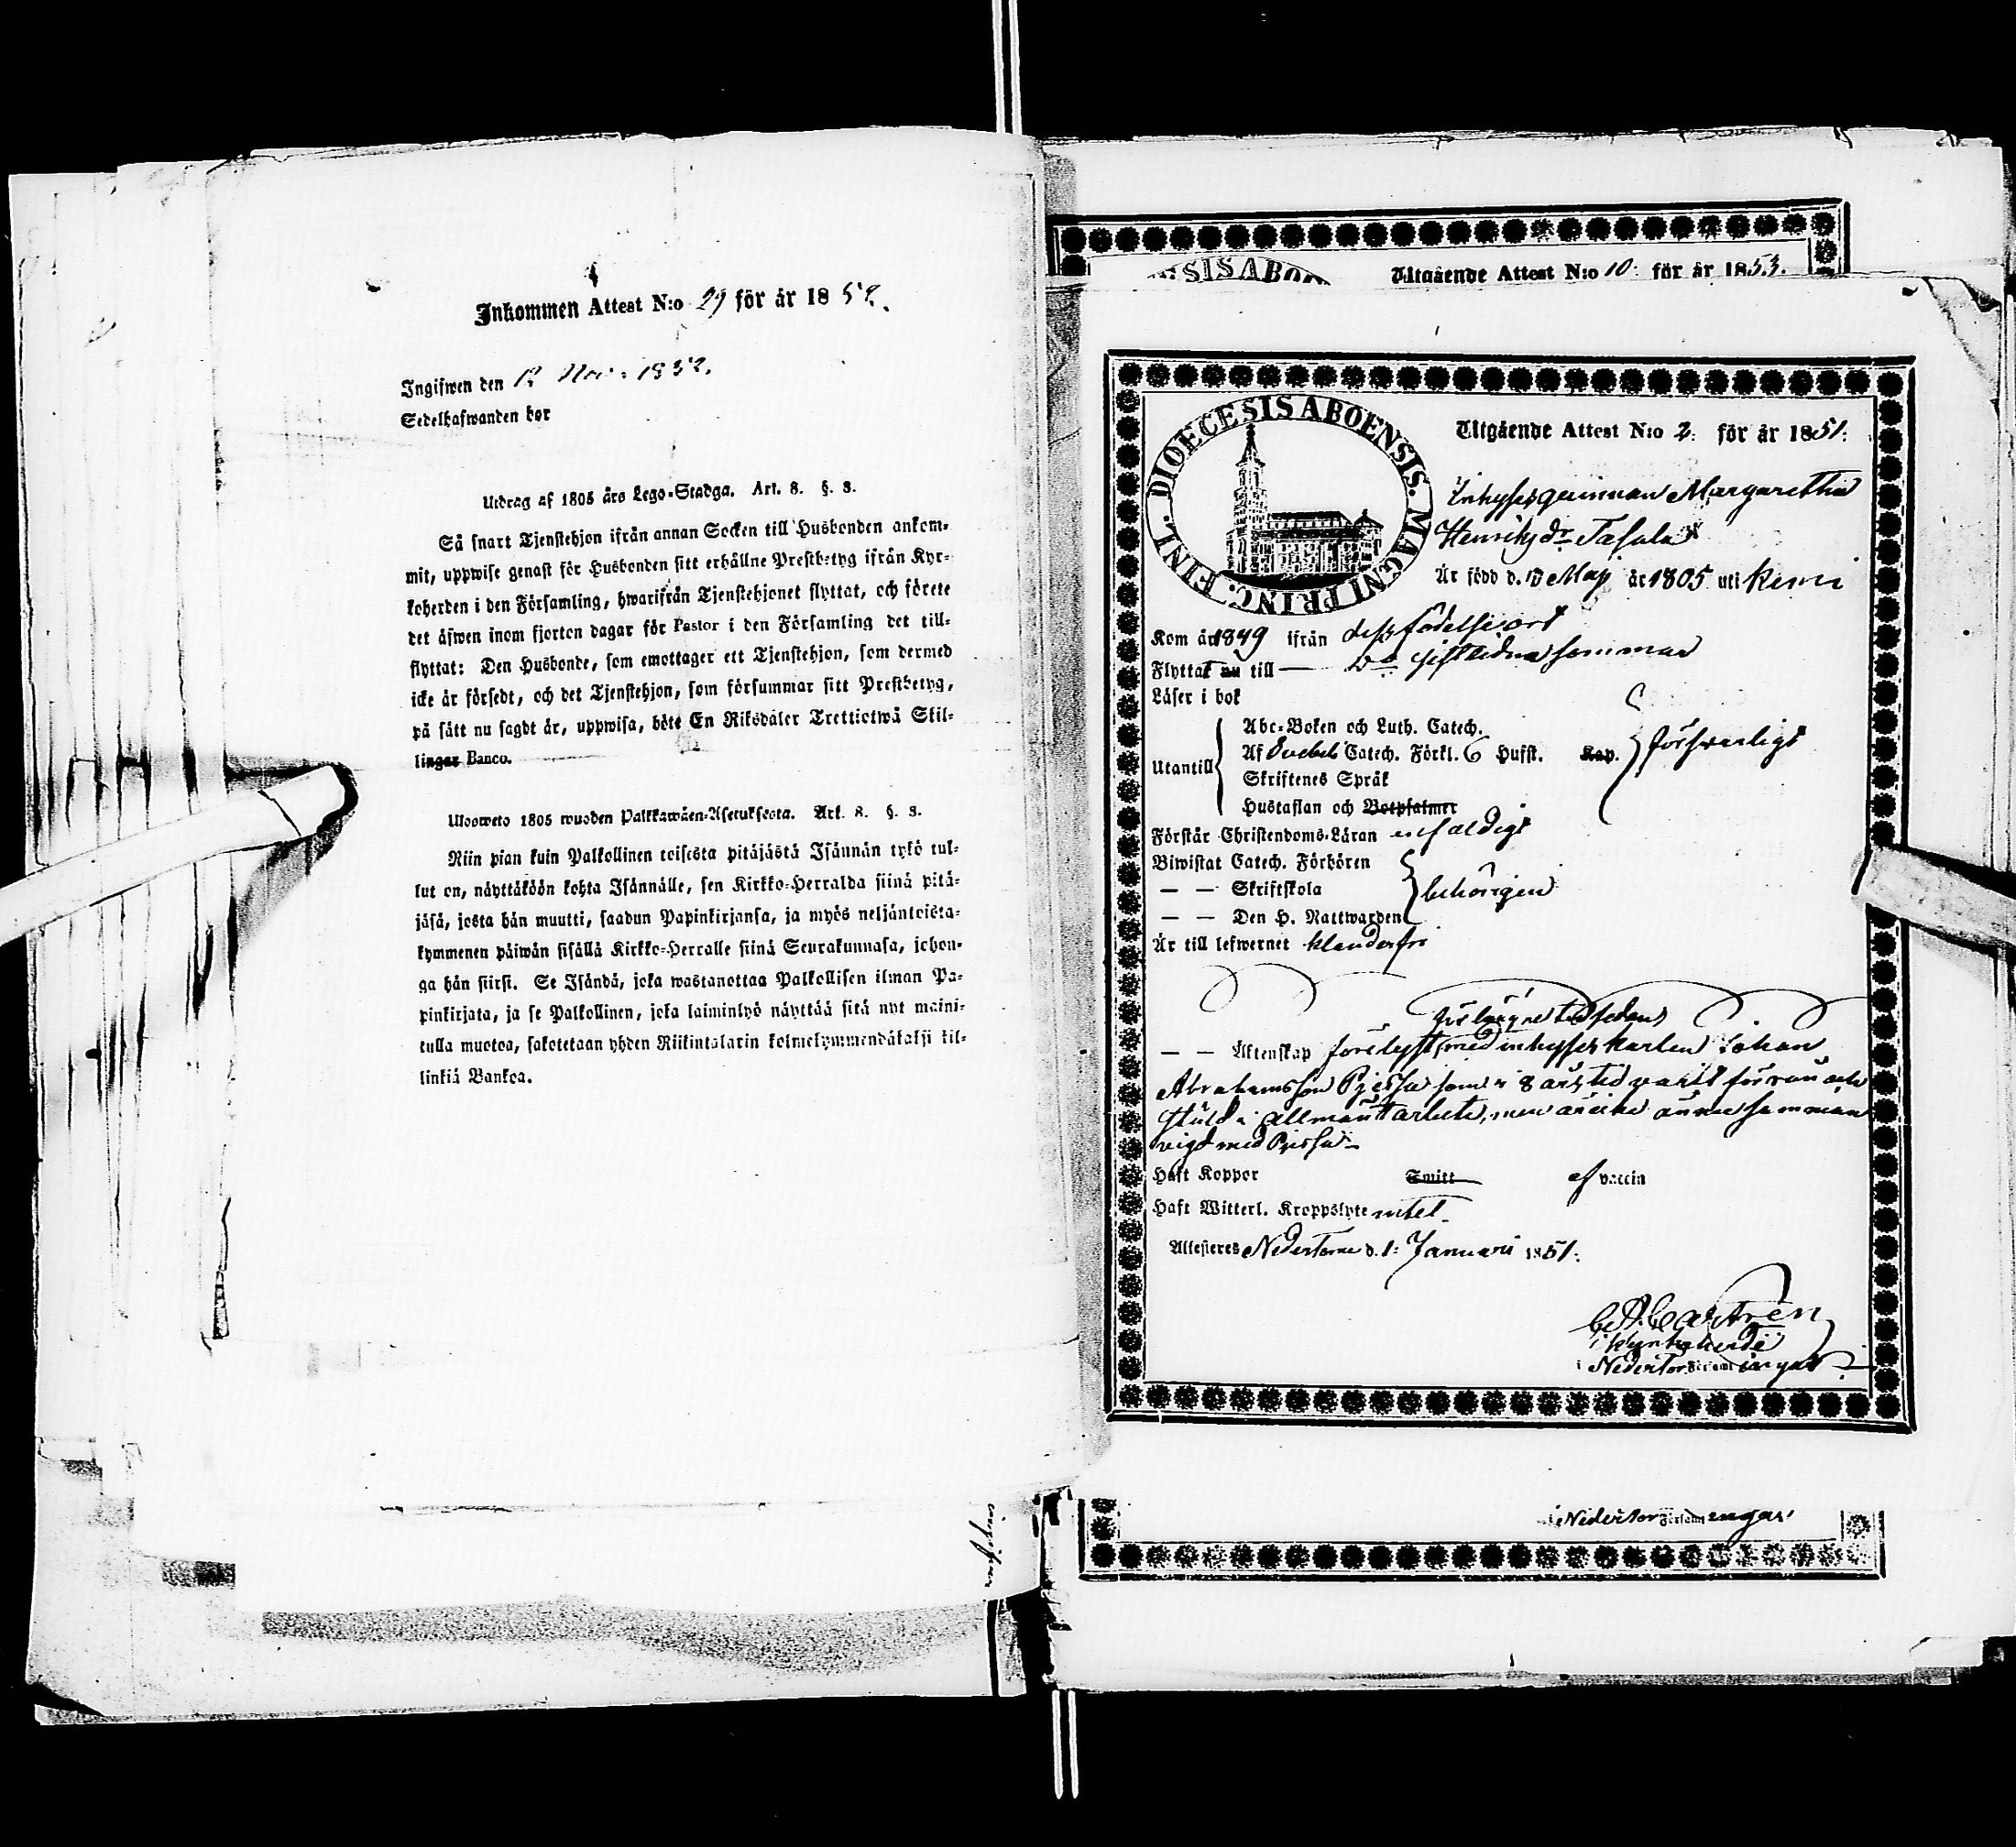 Inkommen Attest N:o 29 för år 1852.
Ingifwen den 12 Nov. 1852.
Sedelhafwanden bör
Utdrag af 1805 års Lego-Stadga. Art. 8. §. 3.
Så snart Tjenstehjon ifrån annan Socken till Husbonden ankom-
mit, uppwise genast för Husbonden sitt erhållne Prestbetyg ifrån Kyr-
koherden i den Församling, hwarifrån Tjenstehjonet flyttat, och förete
det äfwen inom fjorton dagar för Pastor i den Församling det till-
flyttat: Den Husbonde, som emottager ett Tjenstehjon, som dermed
icke är försedt, och det Tjenstehjon, som försummar sitt Prestbetyg,
på sätt nu sagdt är, uppwisa, böte En Riksdaler Trettiotwå Skil-
lingar Banco.
Ulosweto 1805 wuoden Palkkawäen-Asetuksesta. Art. 8. §. 3.
Niin pian kuin Palkollinen toisesta pitäjästä Isännän tykö tul-
lut on, näyttäköön kohta Isännälle, sen Kirkko-Herralda siinä pitä-
jäsä, josta hän muutti, saadun Papinkirjansa, ja myös neljäntoista-
kymmenen päiwän sisällä Kirkko-Herralle siinä Seurakunnasa, johon-
ga hän siirsi. Se Isändä, joka wastanottaa Palkollisen ilman Pa-
pinkirjata, ja se Palkollinen, joka laiminlyö näyttää sitä nyt maini-
tulla muotoa, sakotetaan yhden Riikintalarin kolmekymmendäkaksi kil-
linkiä Bankoa.
SIS ABO
Utgående Attest N:o 10: för år 1853.
DIOECESIS ABOENSIS. MAGNI PRINC. FINL.
Utgående Attest N:o 2: för år 1851:
Inhysesqvinnan Margaretha
Henriksdr
Är född d. 13 Maji år 1805 uti Kemi
Kom år 1849 ifrån dess födelseort
Flyttat nu till — Do sistledna sommar
Läser i bok
Abc-Boken och Luth. Catech.
Af Svebeli Catech. Förkl. 6 Hufst. Kap. försvarligt
Utantill
Skriftenes Språk
Hustaflan och Botpsalmer
Förstår Christendoms-Läran enfaldigt
Biwistat Catech. Förhören
— — Skriftskola behörigen
— — Den H. Nattwarden
Är till lefwernet klanderfri
tid sedan
— — Äktenskap förelyst med inhyseskarlen Johan
Abrahamsson som i 8 års tid varit för rån och
stöld i allmänt arbete, men är icke ännu samman
vigd med
Haft Koppor Smitt af vaccin
Haft Witterl. Kroppslyte intet.
Attesteres Nedertorne d. 1: Januari 1851:
Castrén
Kyrkoherde
i Nedertor Församlingar
i Nedertor Församlingar